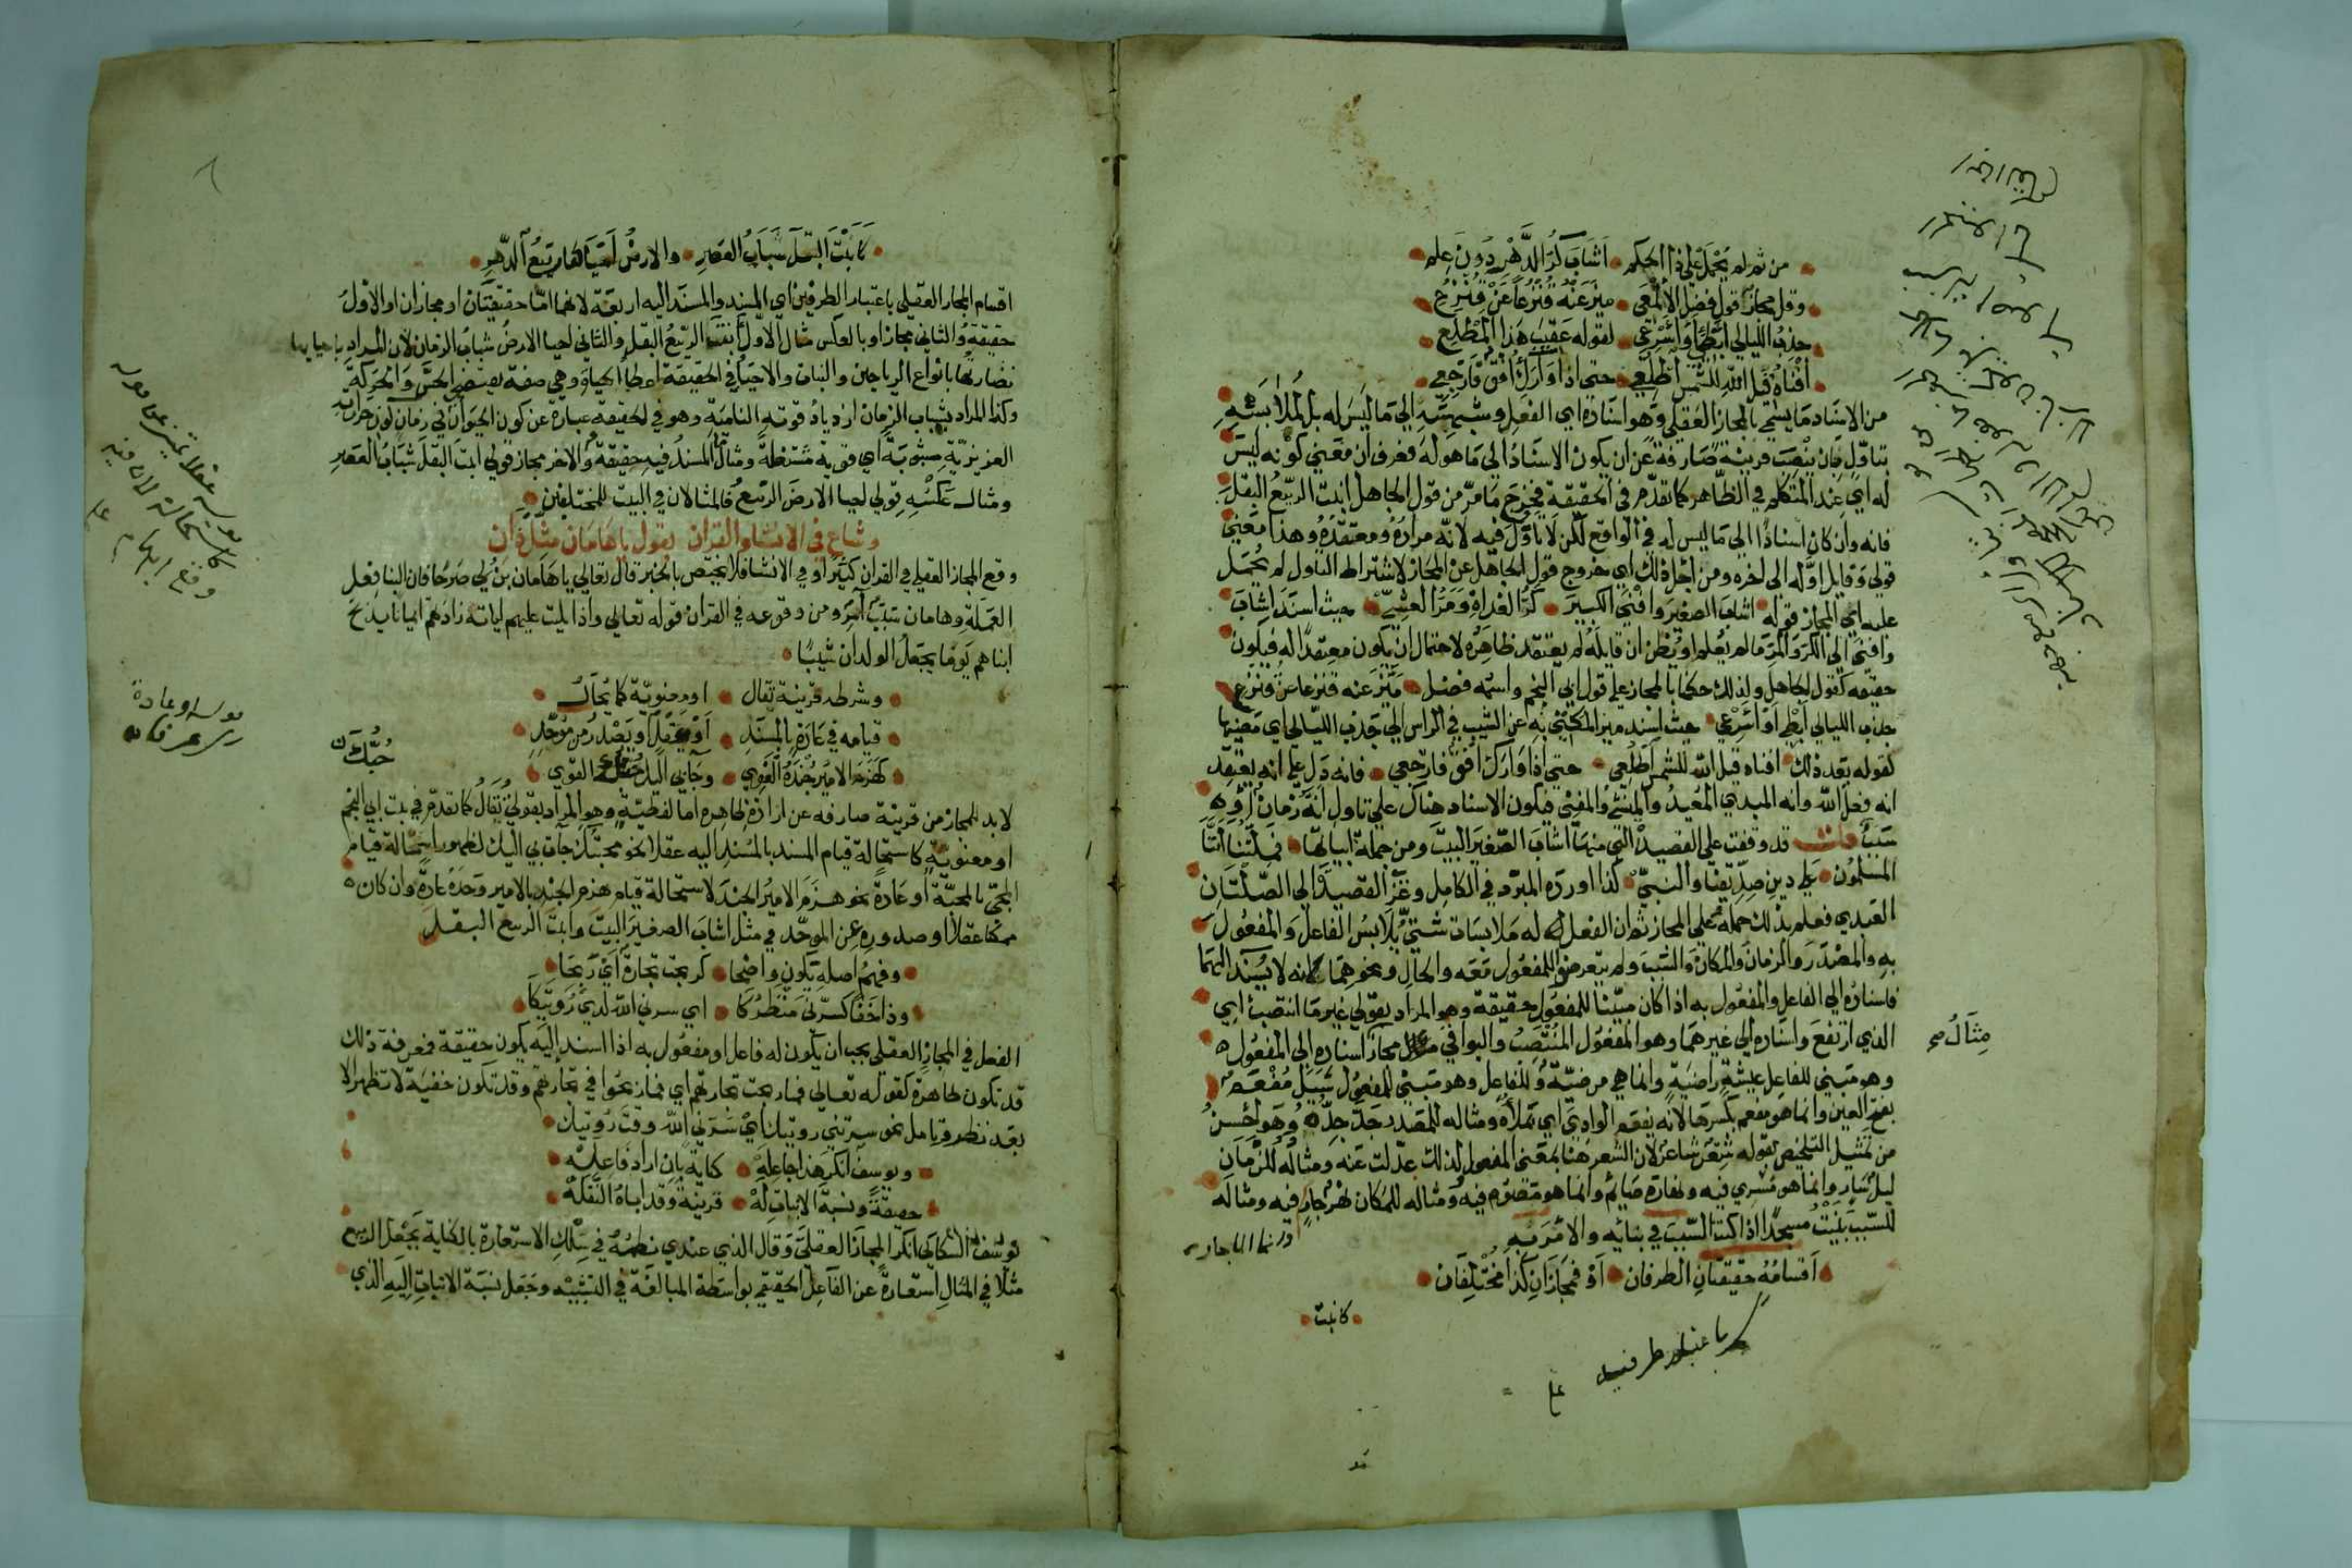 من ثم لم يحمل على ذا الحكم • اشاب كر الدهر دون علم
وقل مجاز قول فضل الالمعي • ميز عنه قنزعا عن قنزع
جذب الليالي ابطئ او اسرعي • لقوله عقيب هذا المطلع
افناه قيل الله للشمس اطلعي • حتى اذا واراك افق فارجعي
من الاسناد ما يسمى بالمجاز العقلي وهو اسناده اي الفعل وشبهه الى ما ليس له بل لملابسه
بتأول بان ينصب قرينة صارفة عن ان يكون الاسناد الى ما هو له فعرف ان معنى كونه ليس
له اي عند المتكلم في الظاهر كما تقدم في الحقيقة فخرج ما مر من قول الجاهل انبت الربيع البقل
فانه وان كان اسنادا الى ما ليس له في الواقع لكن لا تأول فيه لانه مراده ومعتقده وهذا معنى
قولي وقايل اوله الى اخره ومن اجل ذلك اي خروج قول الجاهل عن المجاز لاشتراط التاول لم يحمل
عليه اي المجاز قوله اشاب الصغير وافنى الكبير • كر الغداة ومر العشي • حيث اسند اشاب
وافنى الى الكر والمر ما لم يعلم او يظن ان قايله لم يعتقد ظاهره لاحتمال ان يكون معتقدا له فيكون
حقيقة كقول الجاهل ولذلك حكما بالمجاز على قول ابي النجم واسمه فضل • ميز عنه قنزعا عن قنزع
جذب الليالي ابطئ او اسرعي • حيث اسند ميز المكنى به عن الشيب في الراس الى جذب الليالي اي مضيها
لقوله بعد ذلك • افناه قيل الله للشمس اطلعي • حتى اذا واراك افق فارجعي • فانه دل على انه يعتقد
انه فعل الله وانه المبدي المعيد والمنشئ والمفني فيكون الاسناد هناك على تاول انه زمان او
سبب قلت قد وقفت على القصيدة التي منها اشاب الصغير البيت ومن جملة ابياتها • فملتنا اننا
المسلمون • على دين صديقنا والنبي • كذا اورده المبرد في الكامل وعزا القصيدة الى الصلتان
العبدي فعلم بذلك حمله على المجاز ثم ان الفعل له ملابسات شتى يلابس الفاعل والمفعول
به والمصدر والزمان والمكان والسبب ولم يتعرض للمفعول معه والحال ونحوهما لانه لا يسند اليهما
فاسناده الى الفاعل والمفعول به اذا كان مبنيا للمفعول حقيقة وهو المراد بقولي غير ما انتصب اي
الذي ارتفع واسناده الى غيرهما وهو المفعول المنتصب والبواقي مجاز اسناده الى المفعول
مثال
وهو مبني للفاعل عيشة راضية وانما هي مرضية وللفاعل وهو مبني للمفعول سيل مفعم
بفتح العين وانما هو مفعم بكسرها لانه يفعم الوادي اي يملأه ومثاله للمصدر جد جده وهو احسن
من تمثيل التلخيص بقوله شعر شاعر لان الشعر هنا بمعنى المفعول لذلك عدلت عنه ومثاله للزمان
ليل سار وانما هو مسري فيه ونهاره صائم وانما هو مصوم فيه ومثاله للمكان نهر جار فيه ومثاله
للسبب بنيت مسجدا اذا كنت السبب في بنائه والامر به
• اقسامه حقيقتان الطرفان • او فمجازان كذا مختلفان
• كانبت •
باعتبار طرفيه
• كانبت البقل شباب العصر • والارض احياها ربيع الدهر •
اقسام المجاز العقلي باعتبار الطرفين اي المسند والمسند اليه اربعة لانهما اما حقيقتان او مجازان او الاول
حقيقة والثاني مجاز او بالعكس مثال الاول انبت الربيع البقل والثاني احيا الارض شباب الزمان لان المراد باحيائها
نضارتها بانواع الرياحين والنبات والاحياء في الحقيقة اعطاء الحياة وهي صفة يقتضي الحس والحركة
وكذا المراد بشباب الزمان ازدياد قوته النامية وهو في الحقيقة عبارة عن كون الحيوان في زمان كون حرارته
الغريزية مشبوبة اي قوية مشتعلة ومثال المسند فيه حقيقة والاخر مجاز قولي انبت البقل شباب العصر
ومثال عكسه قولي احيا الارض الربيع فالمثالان في البيت للمختلفين
وشاع في الانشا والقران يقول يا هامان مثل ذان
وقع المجاز العقلي في القران كثيرا وفي الانشا فلا يختص بالخبر قال تعالى يا هامان ابن لي صرحا فان البنا فعل
العملة وهامان سبب آمر ومن وقوعه في القران قوله تعالى واذا تليت عليهم اياته زادهم ايمانا يذبح
ابناهم يوما يجعل الولدان شيبا •
• وشرطه قرينة تقال • او معنوية كما يحال •
• قيامه في عادة بالمسند • او عقل او يصدر من موحد •
• كهزم الامير جنده الغوي • وجاء بي اليك حبك القوي
حبك
لا بد للمجاز من قرينة صارفه عن ارادة ظاهره اما لفظية وهو المراد بقولي تقال كما تقدم في بيت ابي النجم
او معنوية كاستحالة قيام المسند بالمسند اليه عقلا نحو محبتك جات بي اليك لظهور استحالة قيام
المجئ بالمحبة او عادة نحو هزم الامير الجند لاستحالة قيام هزم الجند بالامير وحده عادة وان كان
ممكنا عقلا او صدوره عن الموحد في مثل اشاب الصغير البيت وانبت الربيع البقل
• وفهم اصله يكون واضحا • كربحت تجارة اي ربحا •
• وذا خفا كسرني منظركا • اي سرني الله لدى رؤيتكا •
الفعل في المجاز العقلي يجب ان يكون له فاعل او مفعول به اذا اسند اليه يكون حقيقة فمعرفة ذلك
قد تكون ظاهرة كقوله تعالى فما ربحت تجارتهم اي فما ربحوا في تجارتهم وقد تكون خفية لا تظهر الا
بعد نظر وتامل نحو سرتني رويتك اي سرني الله وقت رؤيتك •
• ويوسف انكر هذا جاعله • كناية بان اراد فاعله •
• حقيقة ونسبة الانبات له • قرينة وقد اباه النقله •
يوسف السكاكي انكر المجاز العقلي وقال الذي عندي نظمه في سلك الاستعارة بالكناية بجعل الربيع
مثلا في المثال استعارة عن الفاعل الحقيقي بواسطة المبالغة في التشبيه وجعل نسبة الانبات اليه الذي